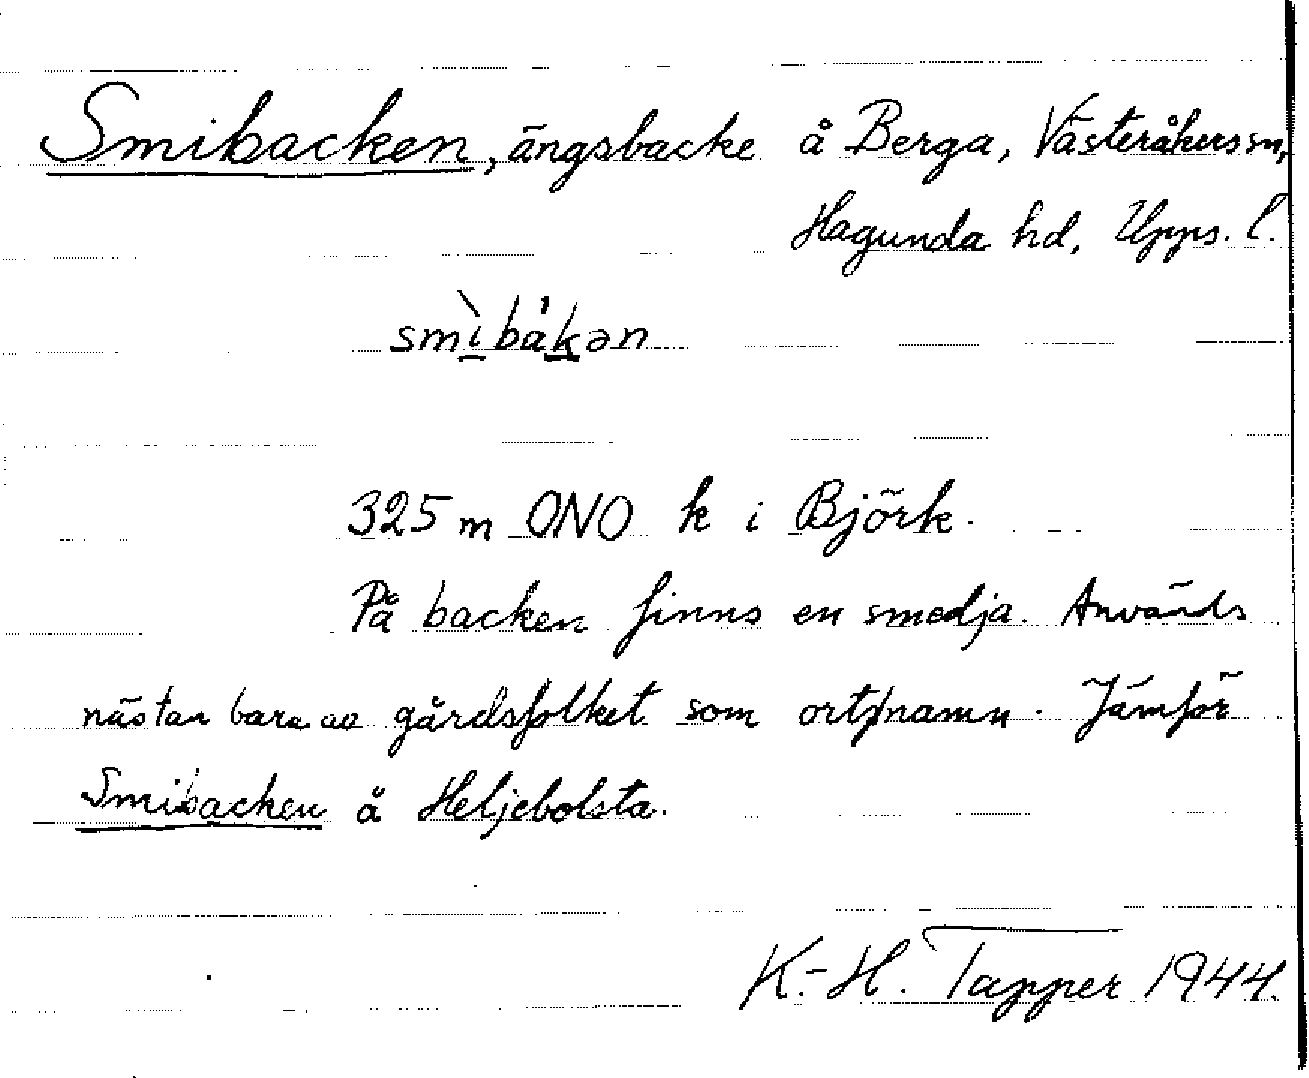 Smibacken, ängsbacke å Berga, Västeråkers sn,
Hagunda hd, Upps. l.
smìbákən
325 m ONO k i Björk.
På backen finns en smedja. Används
nästan bara av gårdsfolket som ortnamn. Jämför
Smibacken å Heljebolsta.
K.-H. Tapper 1944.